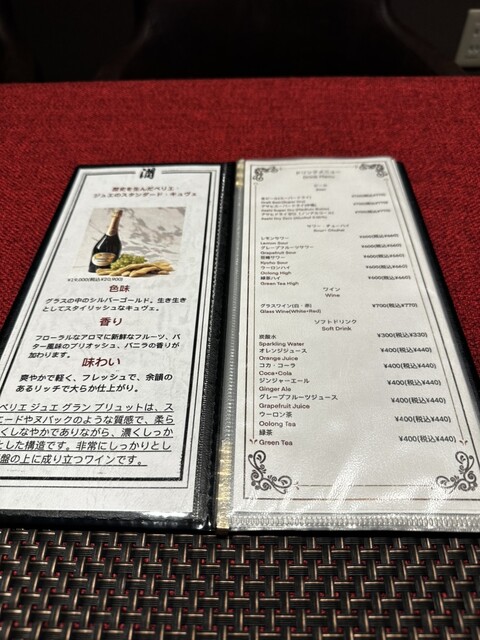 潤
歴史を生んだペリエ・
ジュエのスタンダード・キュヴェ
¥19,000(税込¥20,900)
色味
グラスの中のシルバーゴールド。生き生き
としてスタイリッシュなキュヴェ。
香り
フローラルなアロマに新鮮なフルーツ、バ
ター風味のブリオッシュ、バニラの香りが
加わります。
味わい
爽やかで軽く、フレッシュで、余韻の
あるリッチで大らか仕上がり。
ペリエ ジュエ グラン ブリュットは、ス
エードやヌバックのような質感で、柔ら
くしなやかでありながら、濃くしっか
とした構造です。非常にしっかりとし
盤の上に成り立つワインです。
ドリンクメニュー
Drink Menu
ビール
Beer
サワー・チューハイ
Sour・Chuhai
レモンサワー ¥600(税込¥660)
Lemon Sour
グレープフルーツサワー ¥600(税込¥660)
Grapefruit Sour
巨峰サワー ¥600(税込¥660)
Kyoho Sour
ウーロンハイ ¥600(税込¥660)
Oolong High
緑茶ハイ ¥600(税込¥660)
Green Tea High
ワイン
Wine
グラスワイン(白・赤) ¥700(税込¥770)
Glass Wine(White・Red)
ソフトドリンク
Soft Drink
炭酸水 ¥300(税込¥330)
Sparkling Water
オレンジジュース ¥400(税込¥440)
Orange Juice
コカ・コーラ ¥400(税込¥440)
Coca・Cola
ジンジャーエール ¥400(税込¥440)
Ginger Ale
グレープフルーツジュース ¥400(税込¥440)
Grapefruit Juice
ウーロン茶 ¥400(税込¥440)
Oolong Tea
緑茶 ¥400(税込¥440)
Green Tea